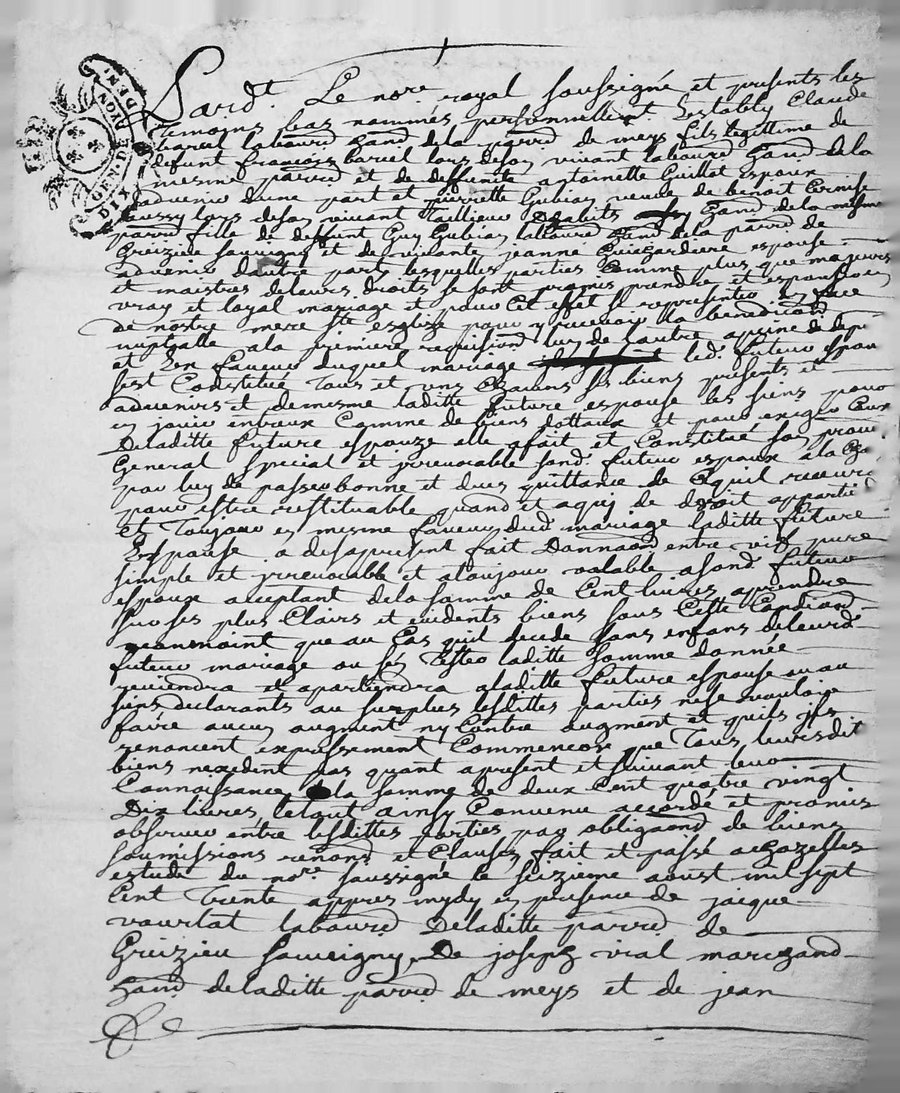 GEN. DE LYON
DIX DEN.
Pard.t Le no.re royal soussigné et presents les
temoins bas nommés personnellem.t Establys Claude
barcel labour.r hand de la parr.e de meys fils legittime de
defunt françois barcel lors de son vivant labour.r hand de la
mesme parr.e et de deffunte antoinette Guillot Espoux
advenir dune part et pierrette Gubian veuve de benoit Cornise
aussy lors de son vivant Tallieur dhabits hand de la mesme
parr.e fille de deffunt Guy Gubian labour.r hand de la parr.e de
Greizieu Souvigny et de vivante jeanne espouse
advenir dautre part, lesquelles parties Comme plus que majeurs
et maistres de leurs droits se sont promis prendre et espouser en
vray et loyal mariage et pour cet effet se representer en face
de nostre mere s.te esglize pour y recevoir la benediction
nuptialle a la premiere requision luy de lautre a peine de depens
et En faveur duquel mariage led. futeur espoux
sest Constitué Tous et uns Chacuns ses biens presents et
advenirs et de mesme laditte future espouse les siens pour
en jouir entreux Comme de biens dottaux et pour exiger Ceux
De laditte future espouze elle a fait et Constitué son procu
General special et irrevocable sond. futeur espoux a la
par luy de passer bonne et dues quittance de Cquil recevra
pour estre restituable quand et a qui de droit appartie.
Et Toujour en mesme faveur dud. mariage laditte future
Espouse a desapresent fait Donnaon entre vifs pure
simple et irrevocable et atoujour valable a sond. futeur
espoux acceptant de la somme de Cent livres aprendre
sur ses plus Clairs et evidents biens sous Cette Condition
neanmoint que au Cas quil decede sans enfans de leurd.
futeur mariage ou sés Tester laditte somme donnée
reviendra et apartiendra a laditte future espouse ou au
siens declarants au surplus lesdittes parties ne se vouloir
faire aucun augment ny Contre augment et quils jss
renoncent expressement Commencore que Tous leursdit
biens nexedent pas quant apresent et suivant leur
Connoissance la somme de deux Cent quatre vingt
Dix livres, le tout ainsy Convenu accordé et promis
observer entre lesdittes parties par obligaons de biens
soumissions renons et Clauses fait et passé a Chazelles
estude du no.re soussigné le seizieme aoust mil sept
Cent Trente appres mydy en presence de jacque
vourlat labour.r De laditte parr.e de
Greizieu Souvigny, De joseph vial marchand
hand de laditte parr.e de meys et de jean